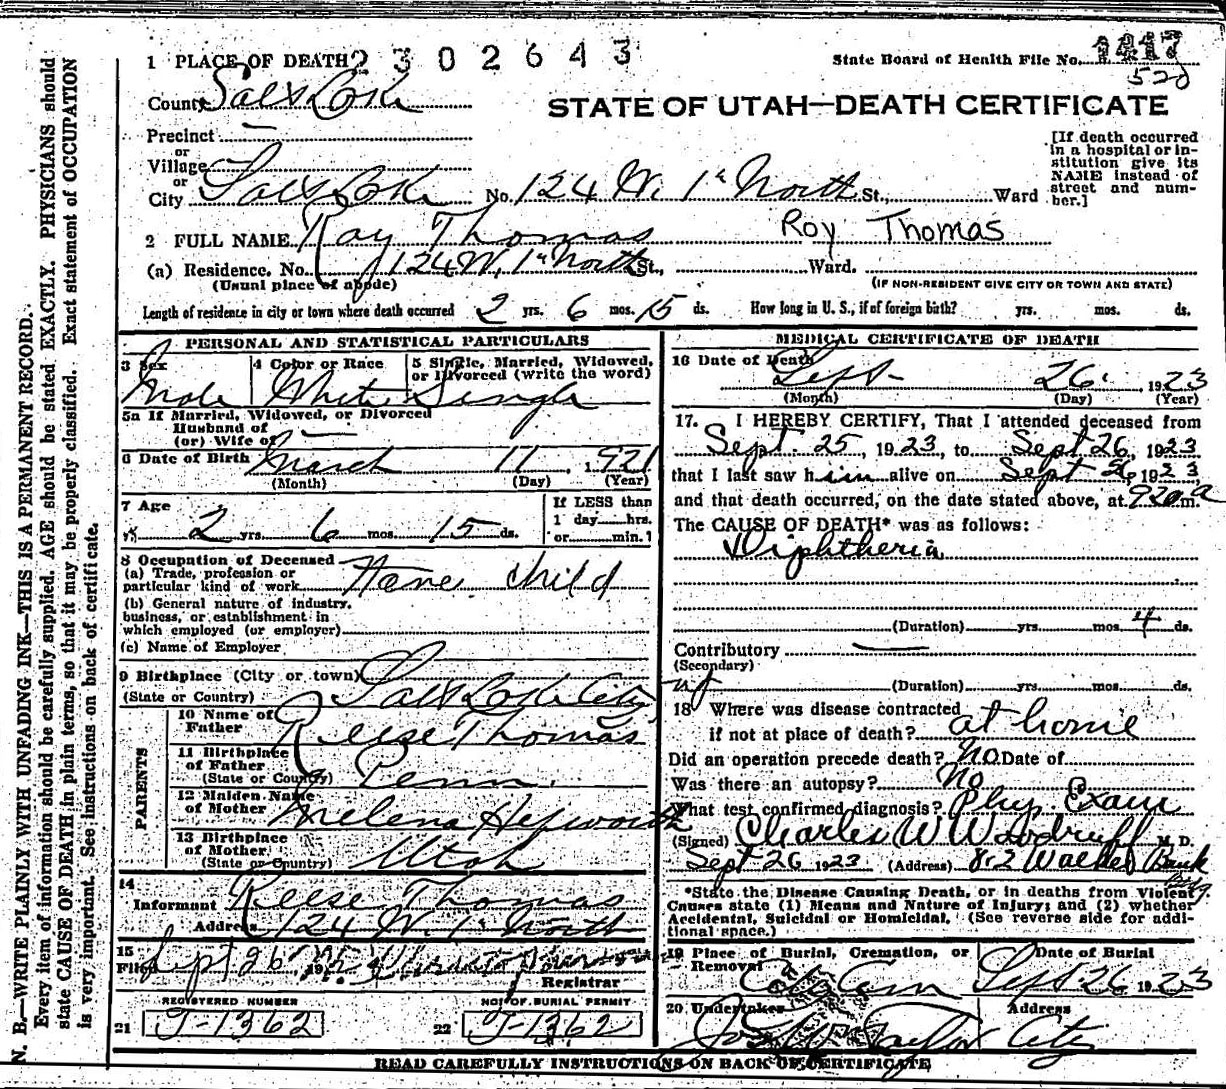 1 PLACE OF DEATH 2302643
State Board of Health File No. 1417
520
County Salt Lake
STATE OF UTAH—DEATH CERTIFICATE
Precinct —
or
Village
or
City Salt Lake No. 124 W. 1st North St., Ward
[If death occurred
in a hospital or in-
stitution give its
NAME instead of
street and num-
ber.]
2 FULL NAME Ray Thomas Roy Thomas
(a) Residence. No. 124 W. 1st North St., Ward.
(Usual place of abode) (IF NON-RESIDENT GIVE CITY OR TOWN AND STATE)
Length of residence in city or town where death occurred 2 yrs. 6 mos. 15 ds. How long in U. S., if of foreign birth? yrs. mos. ds.
PERSONAL AND STATISTICAL PARTICULARS
3 Sex 4 Color or Race 5 Single, Married, Widowed,
or Divorced (write the word)
Male White Single
5a If Married, Widowed, or Divorced
Husband of
(or) Wife of —
6 Date of Birth March 11, 1921
(Month) (Day) (Year)
7 Age If LESS than
2 yrs. 6 mos. 15 ds. 1 day hrs.
or min.
8 Occupation of Deceased
(a) Trade, profession or
particular kind of work None child
(b) General nature of industry,
business, or establishment in
which employed (or employer)
(c) Name of Employer
9 Birthplace (City or town)
(State or Country) Salt Lake City
PARENTS
10 Name of
Father Reese Thomas
11 Birthplace
of Father
(State or Country) Penn.
12 Maiden Name
of Mother Melena Hepworth
13 Birthplace
of Mother
(State or Country) Utah
14
Informant Reese Thomas
Address 124 W. 1st North
15
Filed Sept 26 19
Registrar
REGISTERED NUMBER NO. OF BURIAL PERMIT
21 J-1362 22 J-1362
MEDICAL CERTIFICATE OF DEATH
16 Date of Death Sept 26, 1923
(Month) (Day) (Year)
17. I HEREBY CERTIFY, That I attended deceased from
Sept. 25, 1923, to Sept 26, 1923
that I last saw him alive on Sept 26, 1923,
and that death occurred, on the date stated above, at 920 a m.
The CAUSE OF DEATH* was as follows:
Diphtheria
(Duration) yrs. mos. 4 ds.
Contributory —
(Secondary)
(Duration) yrs. mos. ds.
18 Where was disease contracted
if not at place of death? at home
Did an operation precede death? No Date of
Was there an autopsy? No
What test confirmed diagnosis? Phy. Exam
(Signed) Charles W Woodruff M. D.
Sept 26 1923 (Address) Walker Bank
Bldg.
*State the Disease Causing Death, or in deaths from Violent
Causes state (1) Means and Nature of Injury; and (2) whether
Accidental, Suicidal or Homicidal. (See reverse side for addi-
tional space.)
19 Place of Burial, Cremation, or Date of Burial
Removal
City Cem Sept 26 1923
20 Undertaker Address
Jos Wm Taylor City
READ CAREFULLY INSTRUCTIONS ON BACK OF CERTIFICATE
N. B.—WRITE PLAINLY WITH UNFADING INK—THIS IS A PERMANENT RECORD.
Every item of information should be carefully supplied. AGE should be stated EXACTLY. PHYSICIANS should
state CAUSE OF DEATH in plain terms, so that it may be properly classified. Exact statement of OCCUPATION
is very important. See instructions on back of certificate.